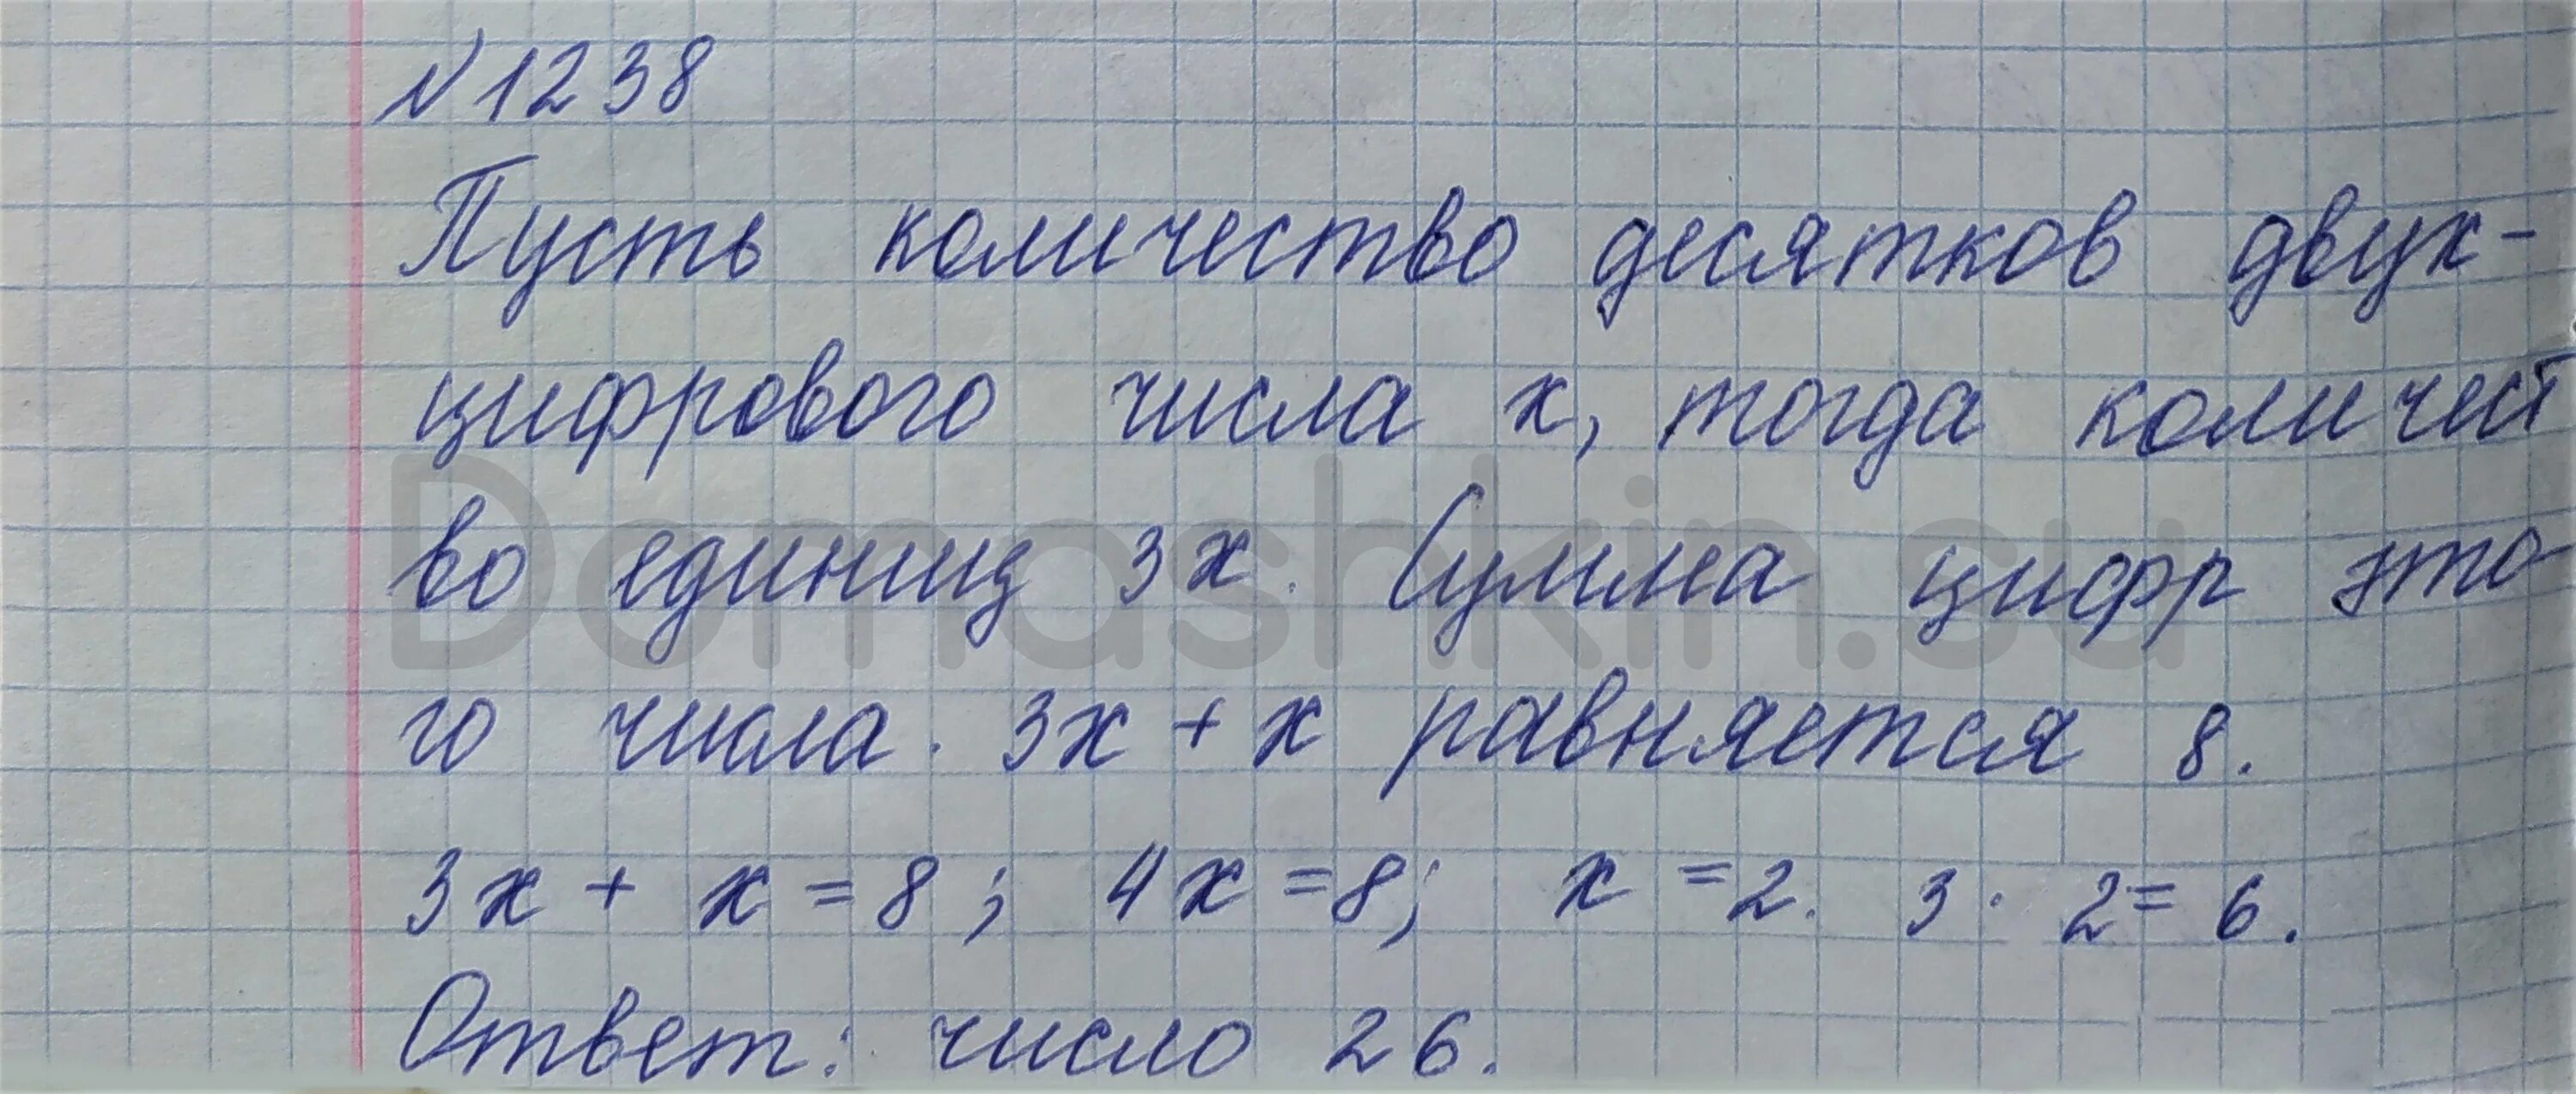 №1238
Пусть количество десятков двух-
цифрового числа х, тогда количест
во единиц 3х. Сумма цифр это
го числа. 3х + х равняется 8.
3х + х = 8; 4х = 8; х = 2. 3 · 2 = 6.
Ответ: число 26.
Domashkin.su